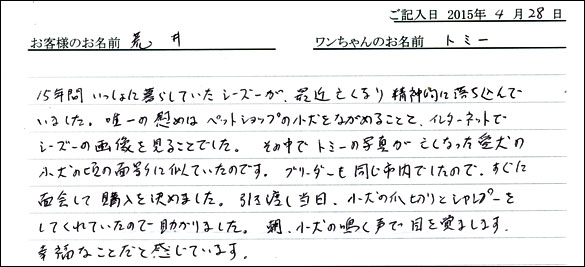 ご記入日 2015年 4 月 28 日
お客様のお名前 荒井 ワンちゃんのお名前 トミー
15年間いっしょに暮らしていたシーズーが、最近亡くなり精神的に落ち込んで
いました。唯一の慰めはペットショップの小犬をながめることと、インターネットで
シーズーの画像を見ることでした。その中でトミーの写真が亡くなった愛犬の
小犬の頃の面影に似ていたのです。ブリーダーも同じ市内でしたので、すぐに
面会して購入を決めました。引き渡し当日、小犬の爪切りとシャンプーを
してくれていたので助かりました。朝、小犬の鳴く声で目を覚まします。
幸福なことだと感じています。